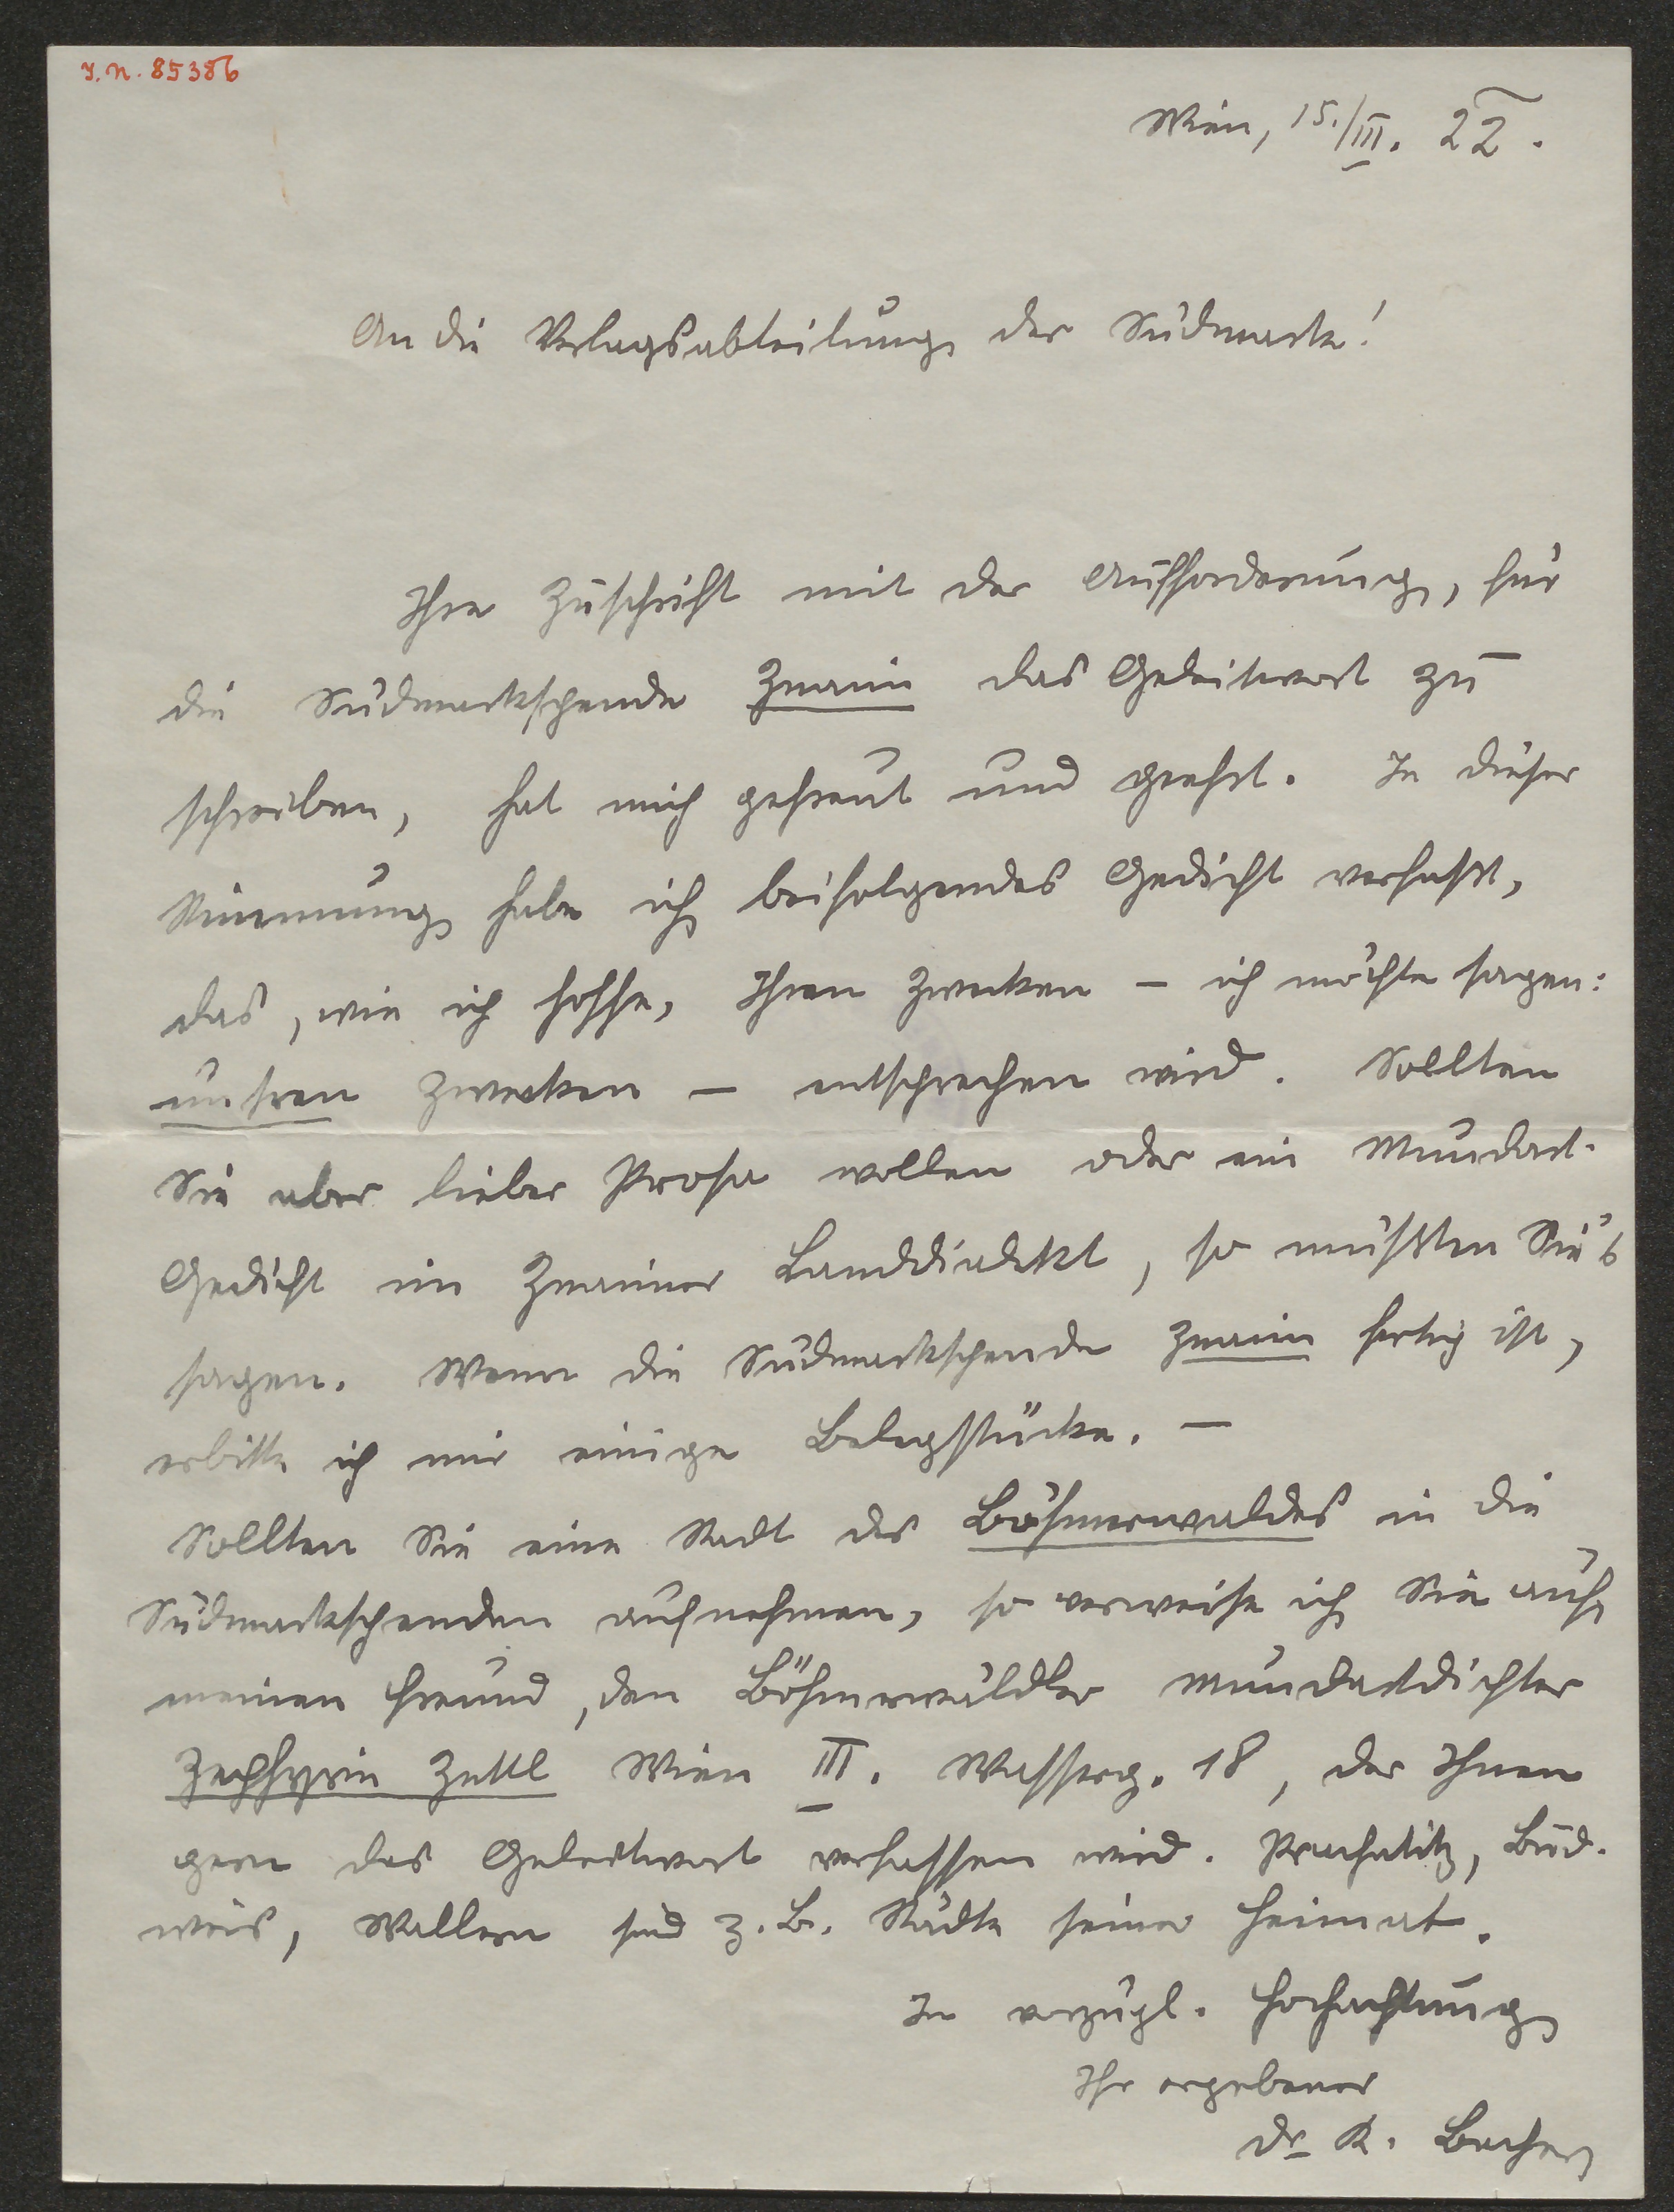 I. N. 85386
Wien, 15./III. 22.
An die Verlagsabteilung der Südmark!
Ihre Zuschrift mit der Aufforderung, für
die Südmarkspende Znaim das Geleitwort zu
schreiben, hat mich gefreut und geehrt. In dieser
Stimmung habe ich beifolgendes Gedicht verfaßt,
das, wie ich hoffe, Ihren Zwecken – ich möchte sagen:
unsren Zwecken – entsprechen wird. Sollten
Sie aber lieber Prosa wollen oder ein Mundart-
Gedicht im Znaimer Landdialekt, so müßten Sie's
sagen. Wenn die Südmarkspende Znaim fertig ist,
erbitte ich mir einige Belegstücke. –
Sollten Sie eine Stadt des Böhmerwaldes in die
Südmarkspenden aufnehmen, so verweise ich Sie auf
meinen Freund, den Böhmerwäldler Mundartdichter
Zephyrin Zettl Wien III. Wasserg. 18, der Ihnen
gern das Geleitwort verfassen wird. Prachatitz, Bud-
weis, Wallern sind z. B. Städte seiner Heimat.
In vorzügl. Hochachtung
Ihr ergebener
Dr K. Bacher